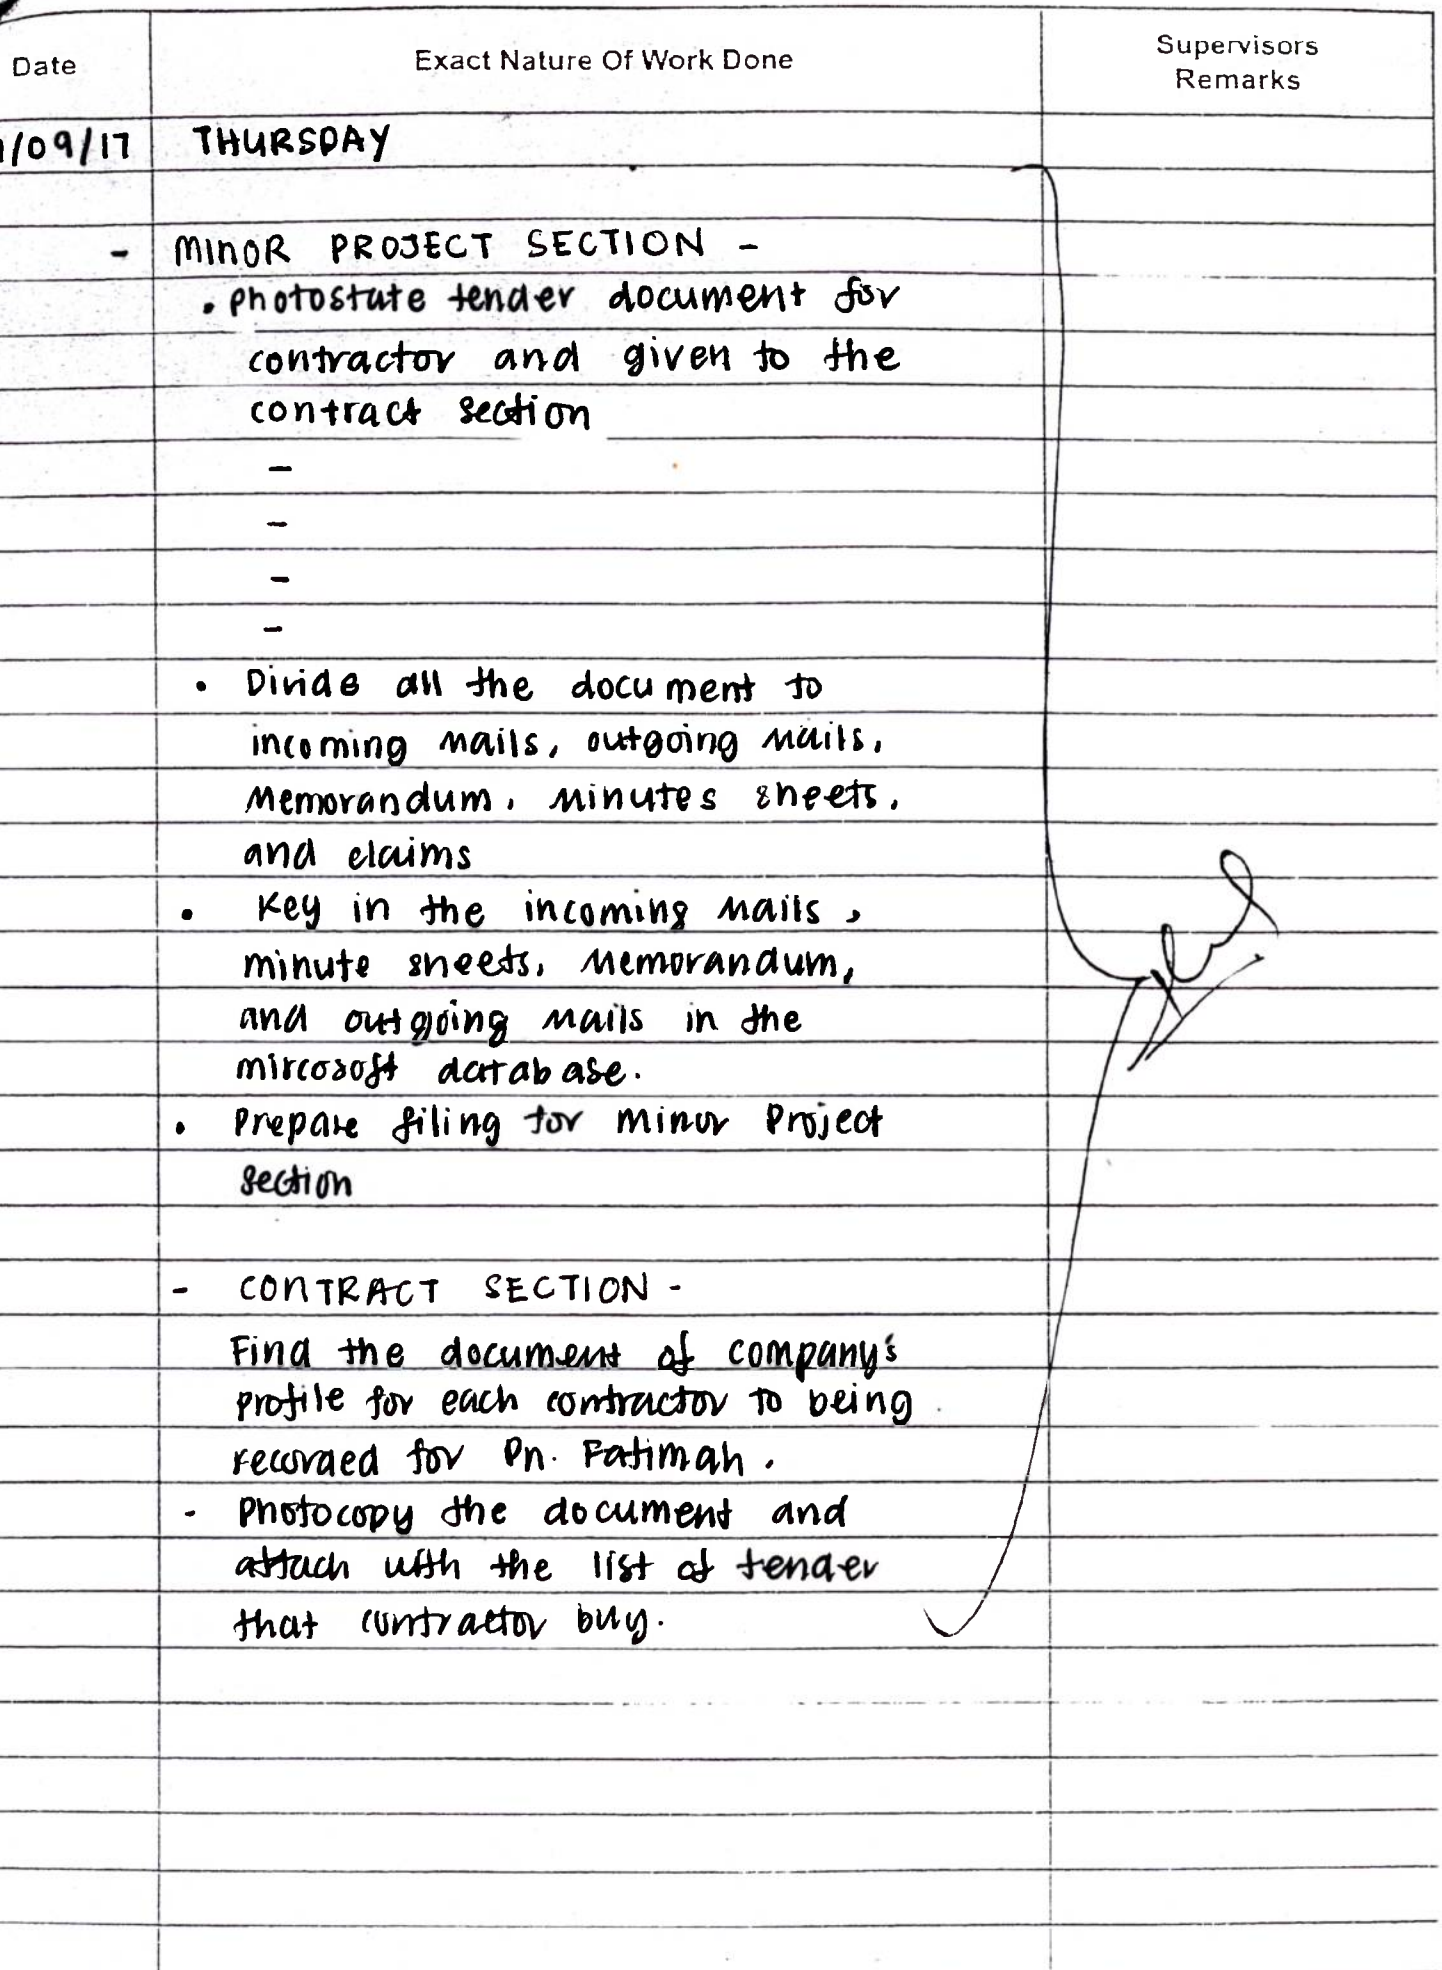 Date Exact Nature Of Work Done Supervisors
Remarks
/09/17 THURSDAY
- MINOR PROJECT SECTION -
• Photostate tender document for
contractor and given to the
contract section
-
-
-
-
• Divide all the document to
incoming mails, outgoing mails,
Memorandum, minutes sheets,
and claims
• Key in the incoming mails,
minute sheets, Memorandum,
and outgoing mails in the
mircosoft database.
• Prepare filing for Minor Project
section
- CONTRACT SECTION -
Find the document of company's
profile for each contractor to being
recorded for Pn. Fatimah.
- Photocopy the document and
attach with the list of tender
that contractor buy.